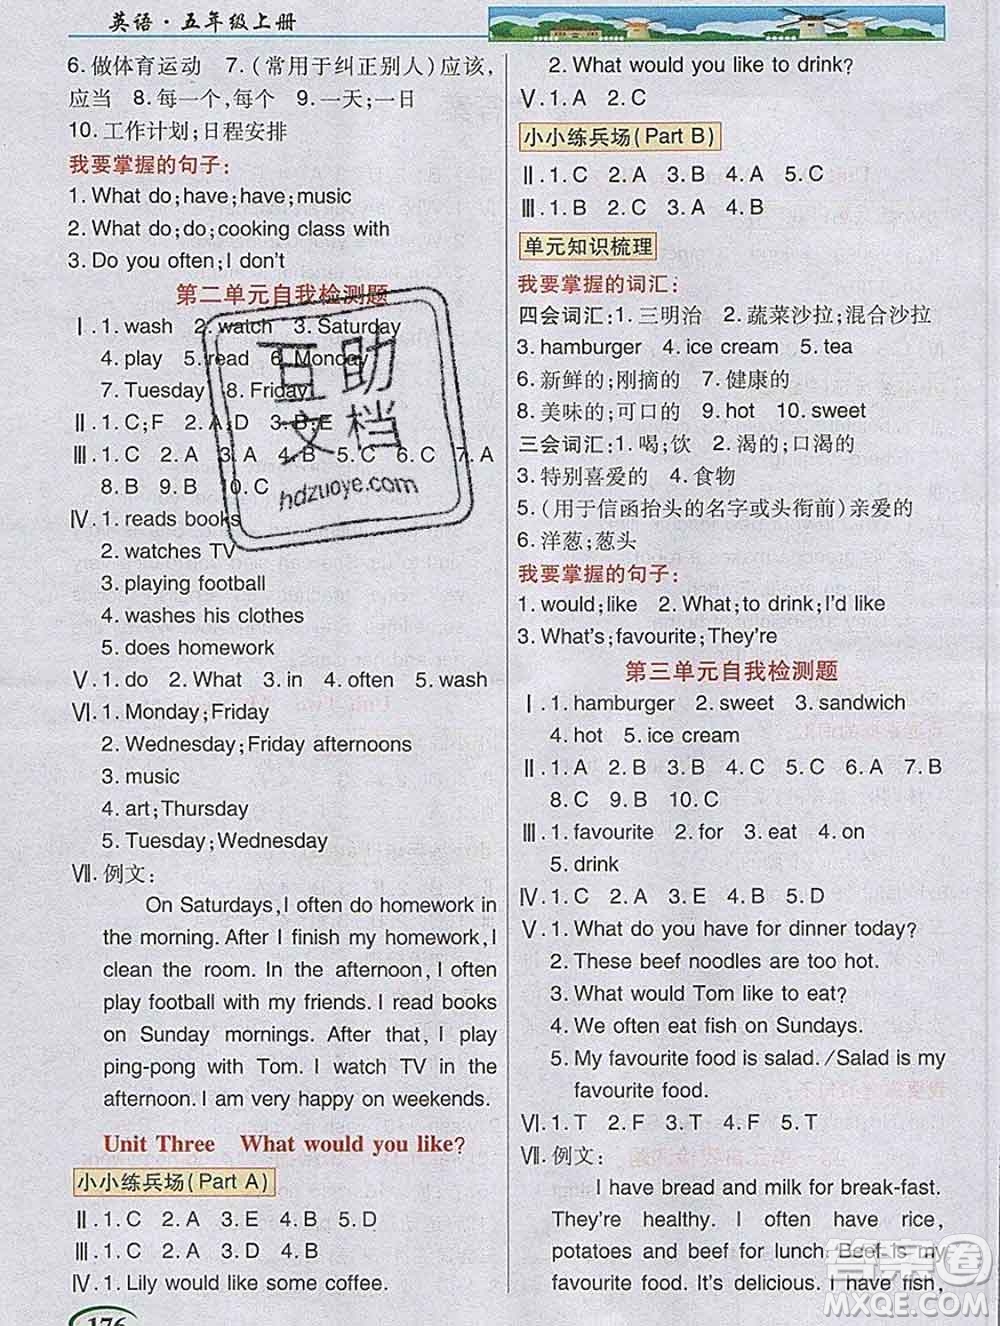 英语·五年级上册
6. 做体育运动 7. (常用于纠正别人)应该,
应当 8. 每一个,每个 9. 一天;一日
10. 工作计划;日程安排
我要掌握的句子:
1. What do;have;have;music
2. What do;do;cooking class with
3. Do you often;I don't
第二单元自我检测题
Ⅰ. 1. wash 2. watch 3. Saturday
4. play 5. read 6. Monday
7. Tuesday 8. Friday
Ⅱ. 1. C;F 2. A;D 3. B;E
Ⅲ. 1. C 2. A 3. A 4. B 5. C 6. C 7. A
8. B 9. B 10. C
Ⅳ. 1. reads books
2. watches TV
3. playing football
4. washes his clothes
5. does homework
Ⅴ. 1. do 2. What 3. in 4. often 5. wash
Ⅵ. 1. Monday;Friday
2. Wednesday;Friday afternoons
3. music
4. art;Thursday
5. Tuesday;Wednesday
Ⅶ. 例文:
On Saturdays,I often do homework in
the morning. After I finish my homework,I
clean the room. In the afternoon, I often
play football with my friends. I read books
on Sunday mornings. After that, I play
ping-pong with Tom. I watch TV in the
afternoon. I am very happy on weekends.
Unit Three What would you like?
小小练兵场(Part A)
Ⅱ. 1. C 2. A 3. E 4. B 5. D
Ⅲ. 1. C 2. A 3. A 4. B 5. C
Ⅳ. 1. Lily would like some coffee.
176
2. What would you like to drink?
Ⅴ. 1. A 2. C
小小练兵场(Part B)
Ⅱ. 1. C 2. A 3. B 4. A 5. C
Ⅲ. 1. C 2. B 3. A 4. B
单元知识梳理
我要掌握的词汇:
四会词汇:1. 三明治 2. 蔬菜沙拉;混合沙拉
3. hamburger 4. ice cream 5. tea
6. 新鲜的;刚摘的 7. 健康的
8. 美味的;可口的 9. hot 10. sweet
三会词汇:1. 喝;饮 2. 渴的;口渴的
3. 特别喜爱的 4. 食物
5. (用于信函抬头的名字或头衔前)亲爱的
6. 洋葱;葱头
我要掌握的句子:
1. would;like 2. What;to drink;I'd like
3. What's;favourite;They're
第三单元自我检测题
Ⅰ. 1. hamburger 2. sweet 3. sandwich
4. hot 5. ice cream
Ⅱ. 1. A 2. B 3. C 4. A 5. C 6. A 7. B
8. C 9. B 10. C
Ⅲ. 1. favourite 2. for 3. eat 4. on
5. drink
Ⅳ. 1. C 2. A 3. E 4. B 5. D
Ⅴ. 1. What do you have for dinner today?
2. These beef noodles are too hot.
3. What would Tom like to eat?
4. We often eat fish on Sundays.
5. My favourite food is salad. /Salad is my
favourite food.
Ⅵ. 1. T 2. F 3. F 4. F 5. T
Ⅶ. 例文:
I have bread and milk for break-fast.
They're healthy. I often have rice,
potatoes and beef for lunch. Beef is my
favourite food. It's delicious. I have fish,
互助
文档
hdzuoye.com
答案圈
MXQE.COM